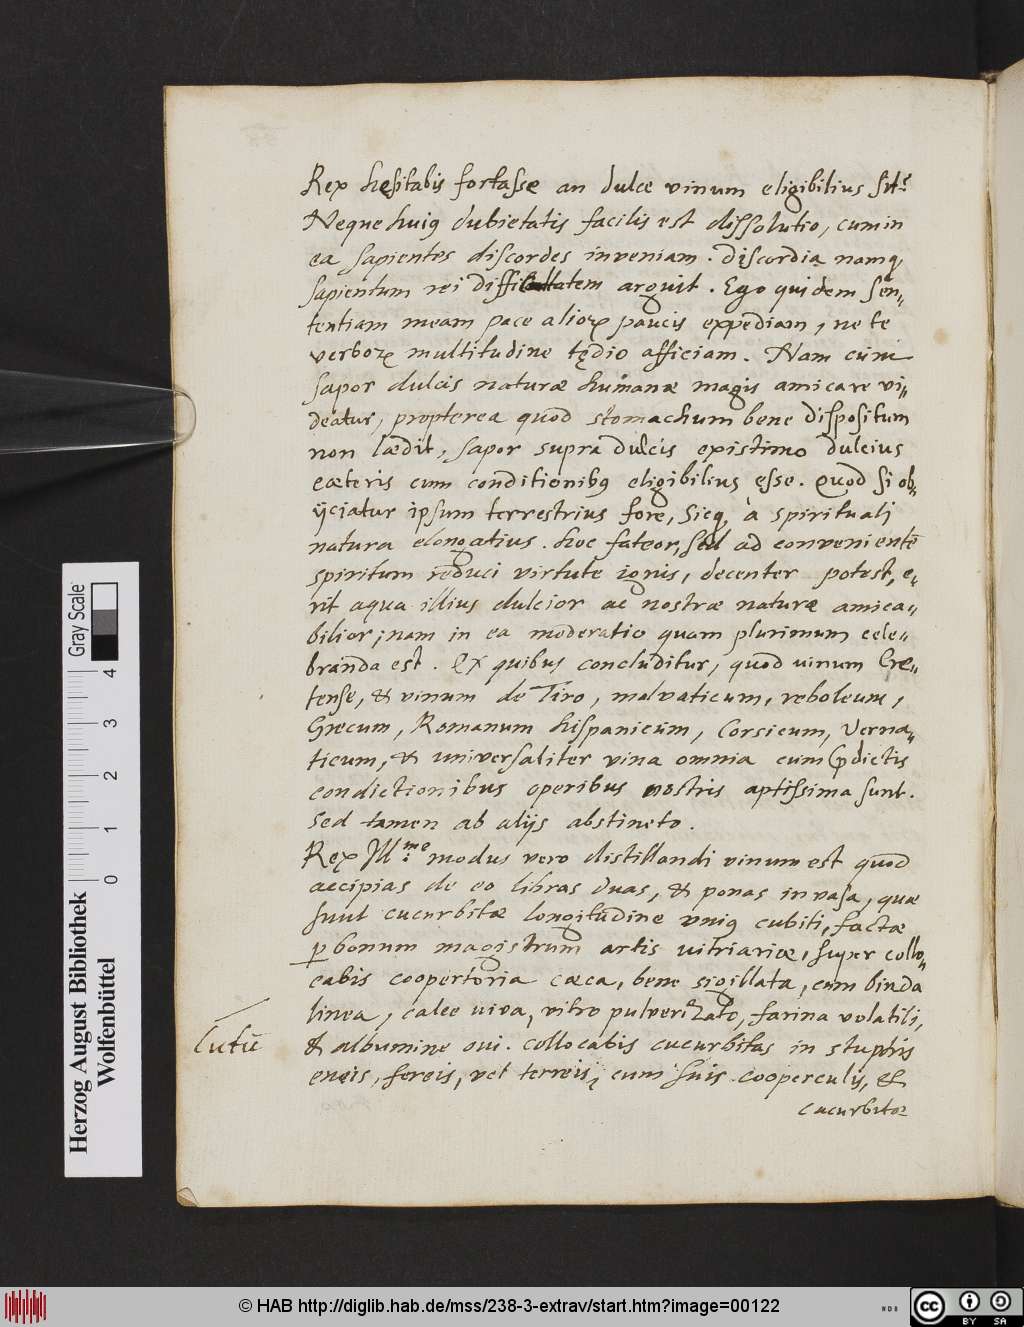 Rex hęsitabis fortasse an dulce vinum eligibilius sit?
Neque huiq dubietatis facilis est dissolutio, cum in
ea sapientes discordes inveniam. Discordia namq,
sapientum rei difficultatem arguit. Ego quidem sen„
tentiam meam pace alioꝝ paucis expediam, ne te
verboꝝ multitudine tędio afficiam. Nam cum
sapor dulcis naturæ humanæ magis amicare vi„
deatur, propterea quod stomachum bene dispositum
non lædit, sapor supra dulcis existimo dulcius
cæteris cum conditionibꝰ eligibilius esse. Quod si ob„
ijciatur ipsum terrestrius fore, sicq, à spirituali
natura elongatius. hoc fateor, sed ad convenientē
spiritum reduci virtute ignis, decenter potest, e„
rit aqua illius dulcior ac nostræ naturæ amica„
bilior, nam in ea moderatio quam plurimum cele„
branda est. Ex quibus concluditur, quod vinum Cre„
tense, & vinum de Tiro, malvaticum, reboleum,
Grecum, Romanum hispanicum, Corsicum, Verna„
ticum, & universaliter vina omnia cum p̄dictis
condictionibus operibus nostris aptissima sunt.
Sed tamen ab alijs abstineto.
Rex Ill.me modus vero distillandi vinum est quod
accipias de eo libras duas, & ponas in vasa, quæ
sunt cucurbitæ longitudine vniꝰ cubiti, factæ
ꝑ bonum magistrum artis vitriariæ, super collo„
cabis coopertoria cæca, bene sigillata, cum binda
linea, calce viva, vitro pulverizato, farina volatili,
& albumine ovi. Collocabis cucurbitas in stuphis
eneis, fereis, vel terreis, cum suis cooperculis, &
cucurbitæ
Lutū
Herzog August Bibliothek
Wolfenbüttel
0 1 2 3 4
Gray Scale
© HAB http://diglib.hab.de/mss/238-3-extrav/start.htm?image=00122
NDB
CC BY SA